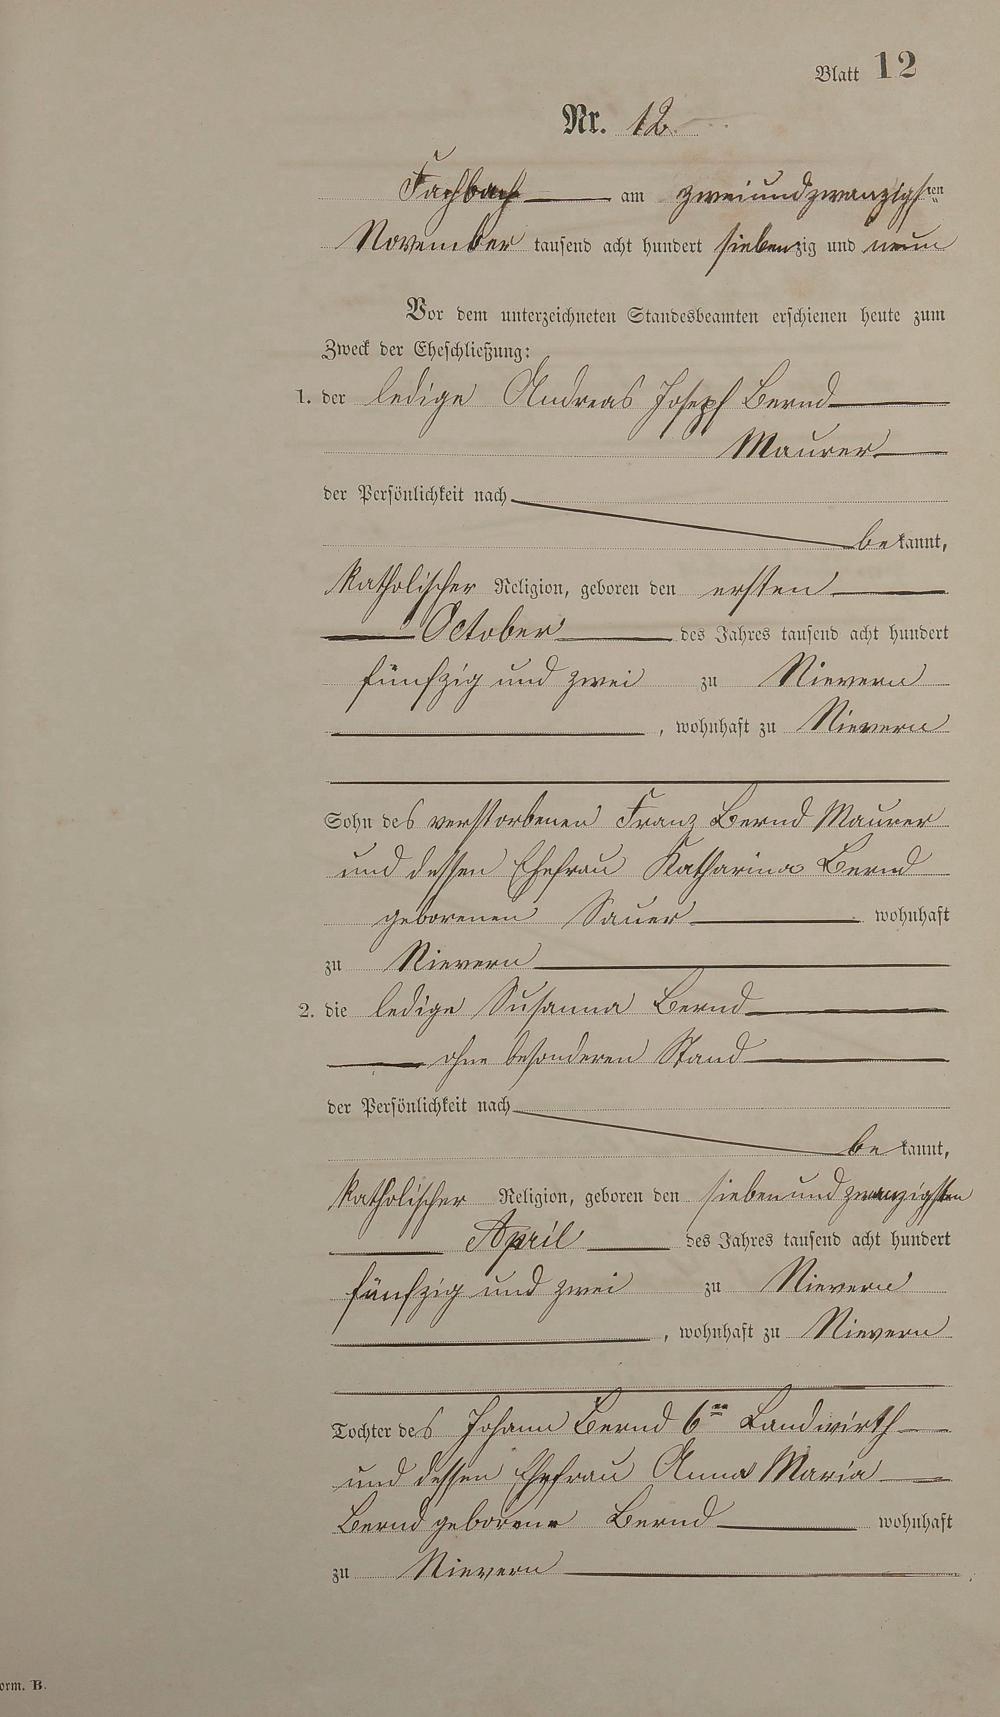 Blatt 12
Nr. 12.
Fachbach am zweiundzwanzigsten
November tausend acht hundert siebenzig und neun
Vor dem unterzeichneten Standesbeamten erschienen heute zum
Zweck der Eheschließung:
1. der ledige Andreas Joseph Bernd
Maurer
der Persönlichkeit nach
bekannt,
katholischer Religion, geboren den ersten
October des Jahres tausend acht hundert
fünfzig und zwei zu Nievern
, wohnhaft zu Nievern
Sohn des verstorbenen Franz Bernd Maurer
und dessen Ehefrau Katharina Bernd
geborenen Sauer wohnhaft
zu Nievern
2. die ledige Susanna Bernd
ohne besonderen Stand
der Persönlichkeit nach
bekannt,
katholischer Religion, geboren den siebenundzwanzigsten
April des Jahres tausend acht hundert
fünfzig und zwei zu Nievern
, wohnhaft zu Nievern
Tochter des Johann Bernd 6ter Landwirth
und dessen Ehefrau Anna Maria
Bernd geborene Bernd wohnhaft
zu Nievern
orm. B.